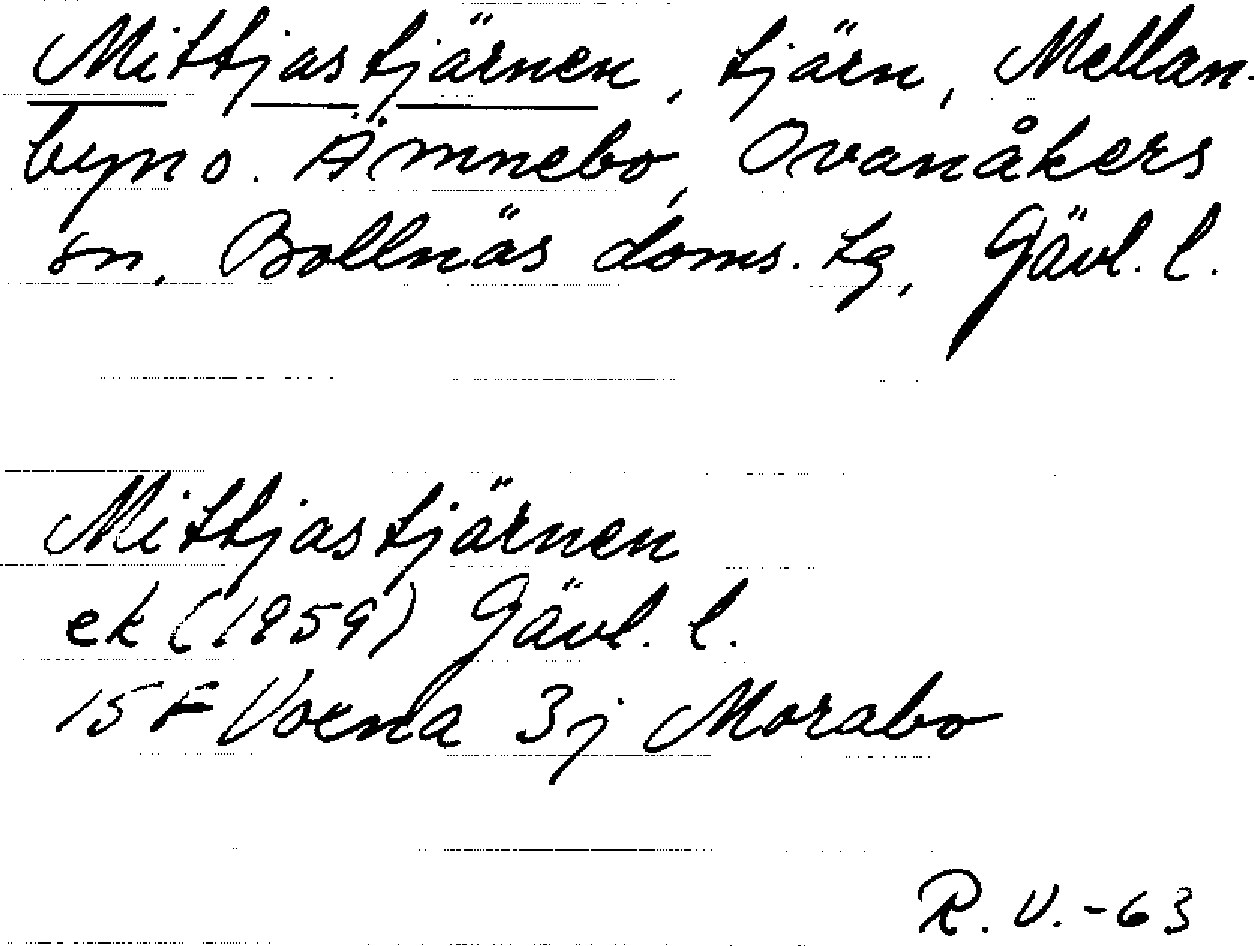 Mittjastjärnen, tjärn, Mellan-
byn o. Ämnebo, Ovanåkers
sn, Bollnäs doms. tg, Gävl. l.
Mittjastjärnen
ek (1959) Gävl. l.
15 F Voxna 3j Morabo
R. V. -63